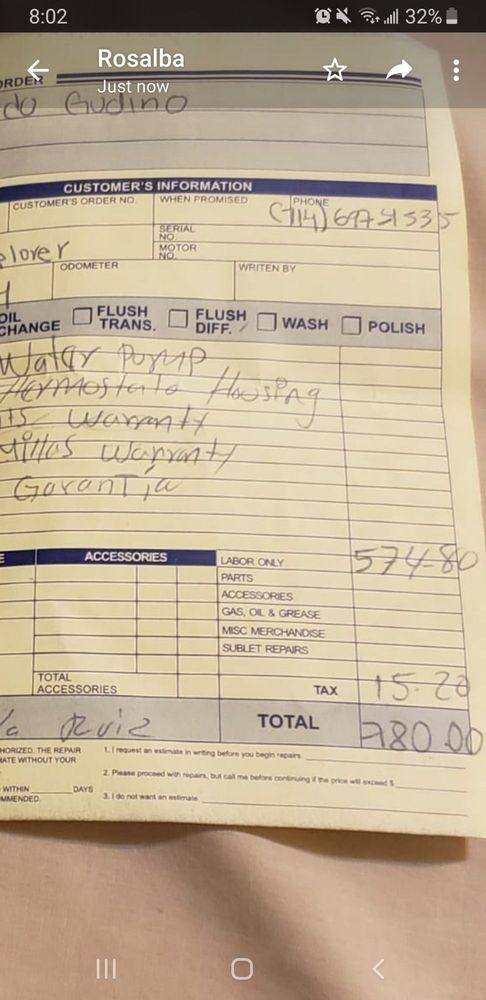 8:02
32%
Rosalba
Just now
ORDER
do Gudino
CUSTOMER'S INFORMATION
CUSTOMER'S ORDER NO. WHEN PROMISED PHONE
SERIAL NO.
MOTOR NO.
plorer
ODOMETER WRITEN BY
OIL CHANGE FLUSH TRANS. FLUSH DIFF. WASH POLISH
Water Pump
Hermostato Housing
Warranty
Millas Warranty
Garantía
ACCESSORIES LABOR ONLY 574.80
PARTS
ACCESSORIES
GAS, OIL & GREASE
MISC MERCHANDISE
SUBLET REPAIRS
TOTAL ACCESSORIES TAX 15.20
Ruiz TOTAL 780.00
HORIZED. THE REPAIR
MATE WITHOUT YOUR
WITHIN DAYS
MMENDED.
1. I request an estimate in writing before you begin repairs.
2. Please proceed with repairs, but call me before continuing if the price will exceed $
3. I do not want an estimate.